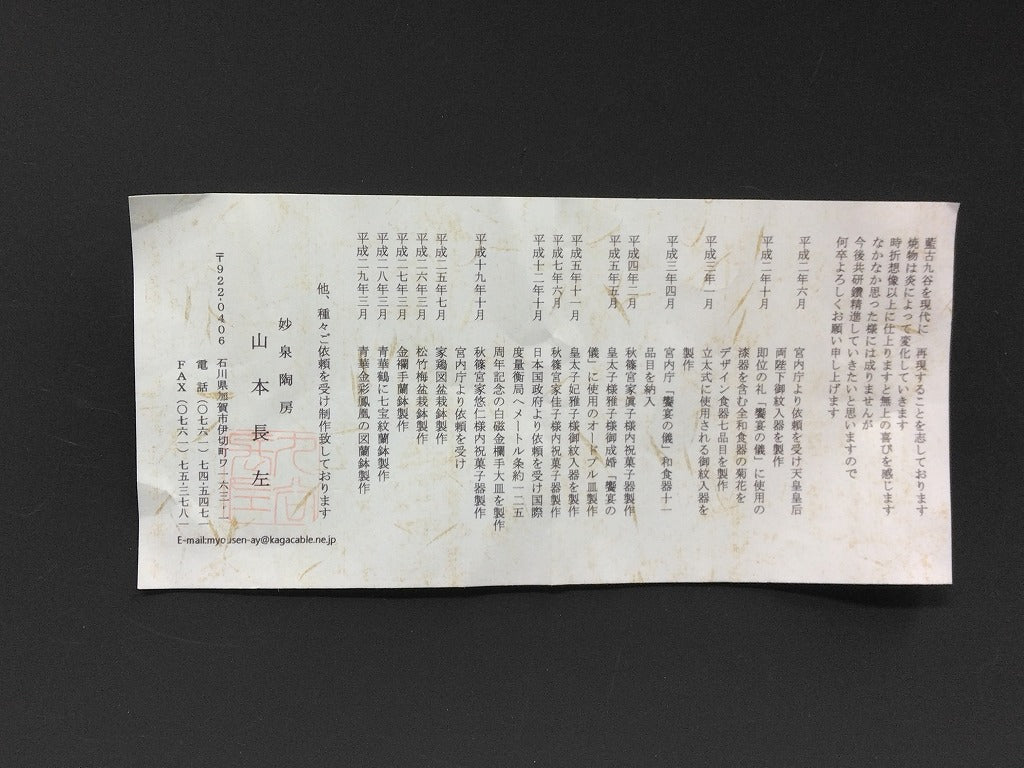 藍古九谷を現代に 再現することを志しております
焼物は炎によって変化していきます
時折想像以上に仕上りますと無上の喜びを感じます
なかなか思った様には成りませんが
今後共研鑽精進していきたいと思いますので
何卒よろしくお願い申し上げます
平成二年六月 宮内庁より依頼を受け天皇皇后
両陛下御紋入器を製作
平成二年十月 即位の礼「饗宴の儀」に使用の
漆器を含む全和食器の菊花を
デザイン食器七品目を製作
平成三年一月 立太式に使用される御紋入器を
製作
平成三年四月 宮内庁「饗宴の儀」和食器十一
品目を納入
平成四年二月 秋篠宮家眞子様内祝菓子器製作
平成五年五月 皇太子様雅子様御成婚「饗宴の
儀」に使用のオードブル皿製作
平成五年十一月 皇太子妃雅子様御紋入器を製作
平成七年六月 秋篠宮家佳子様内祝菓子器製作
平成十二年十月 日本国政府より依頼を受け国際
度量衡局へメートル条約一二五
周年記念の白磁金襴手大皿を製作
平成十九年十月 秋篠宮家悠仁様内祝菓子器製作
宮内庁より依頼を受け
平成二五年七月 家鶏図盆栽鉢製作
平成二六年三月 松竹梅盆栽鉢製作
平成二七年三月 金襴手蘭鉢製作
平成二八年三月 青華鶴に七宝紋蘭鉢製作
平成二九年三月 青華金彩鳳凰の図蘭鉢製作
他、種々ご依頼を受け制作致しております
妙泉陶房
山本長左
〒922-0406 石川県加賀市伊切町ワ一六三-一
電話(〇七六一)七四-五四七一
FAX(〇七六一)七五-三七八一
E-mail:myousen-ay@kagacable.ne.jp